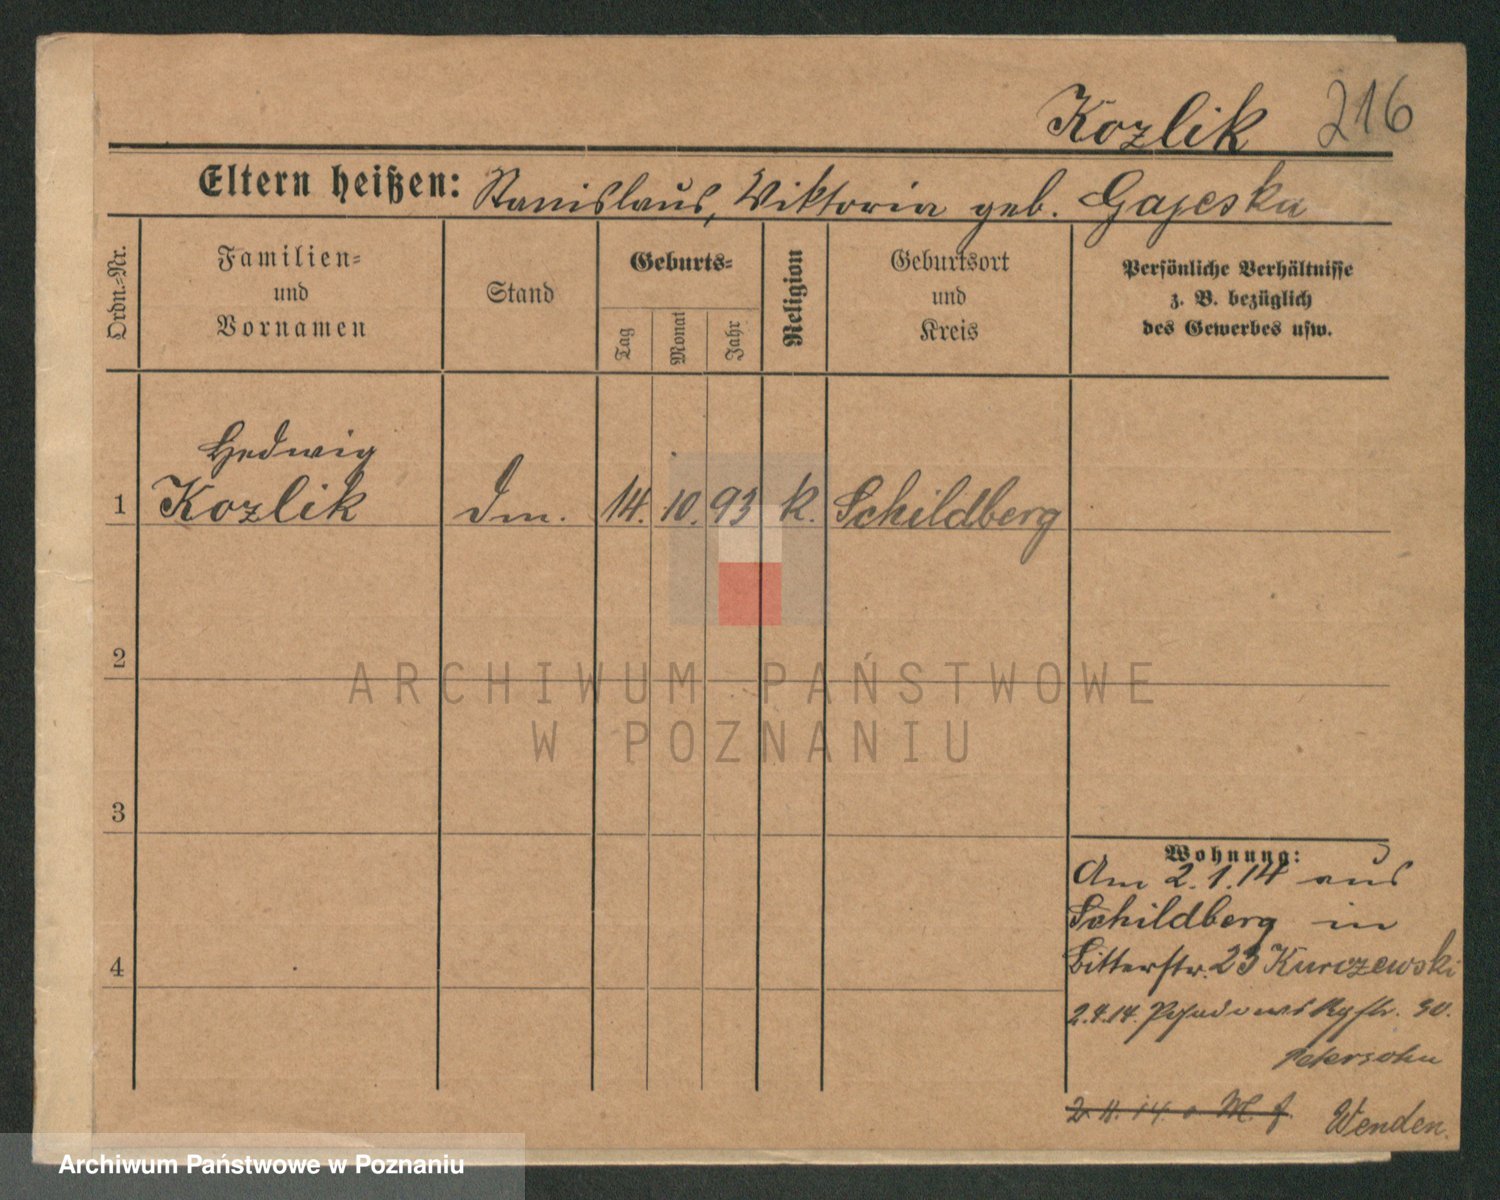 Kozlik 216
Eltern heißen: Stanislaus, Viktoria geb. Gajeska
Ordn.=Nr.
Familien=
und
Vornamen
Stand
Geburts=
Tag
Monat
Jahr
Religion
Geburtsort
und
Kreis
Persönliche Verhältnisse
z. B. bezüglich
des Gewerbes usw.
Hedwig
1 Kozlik Dm. 14. 10. 93 k. Schildberg
2
3
4
Wohnung:
Am 2.1.14 aus
Schildberg in
Bitterstr. 23 Kurczewski
2.4.14. 30.
Petersohn
Wenden.
ARCHIWUM PAŃSTWOWE
W POZNANIU
Archiwum Państwowe w Poznaniu